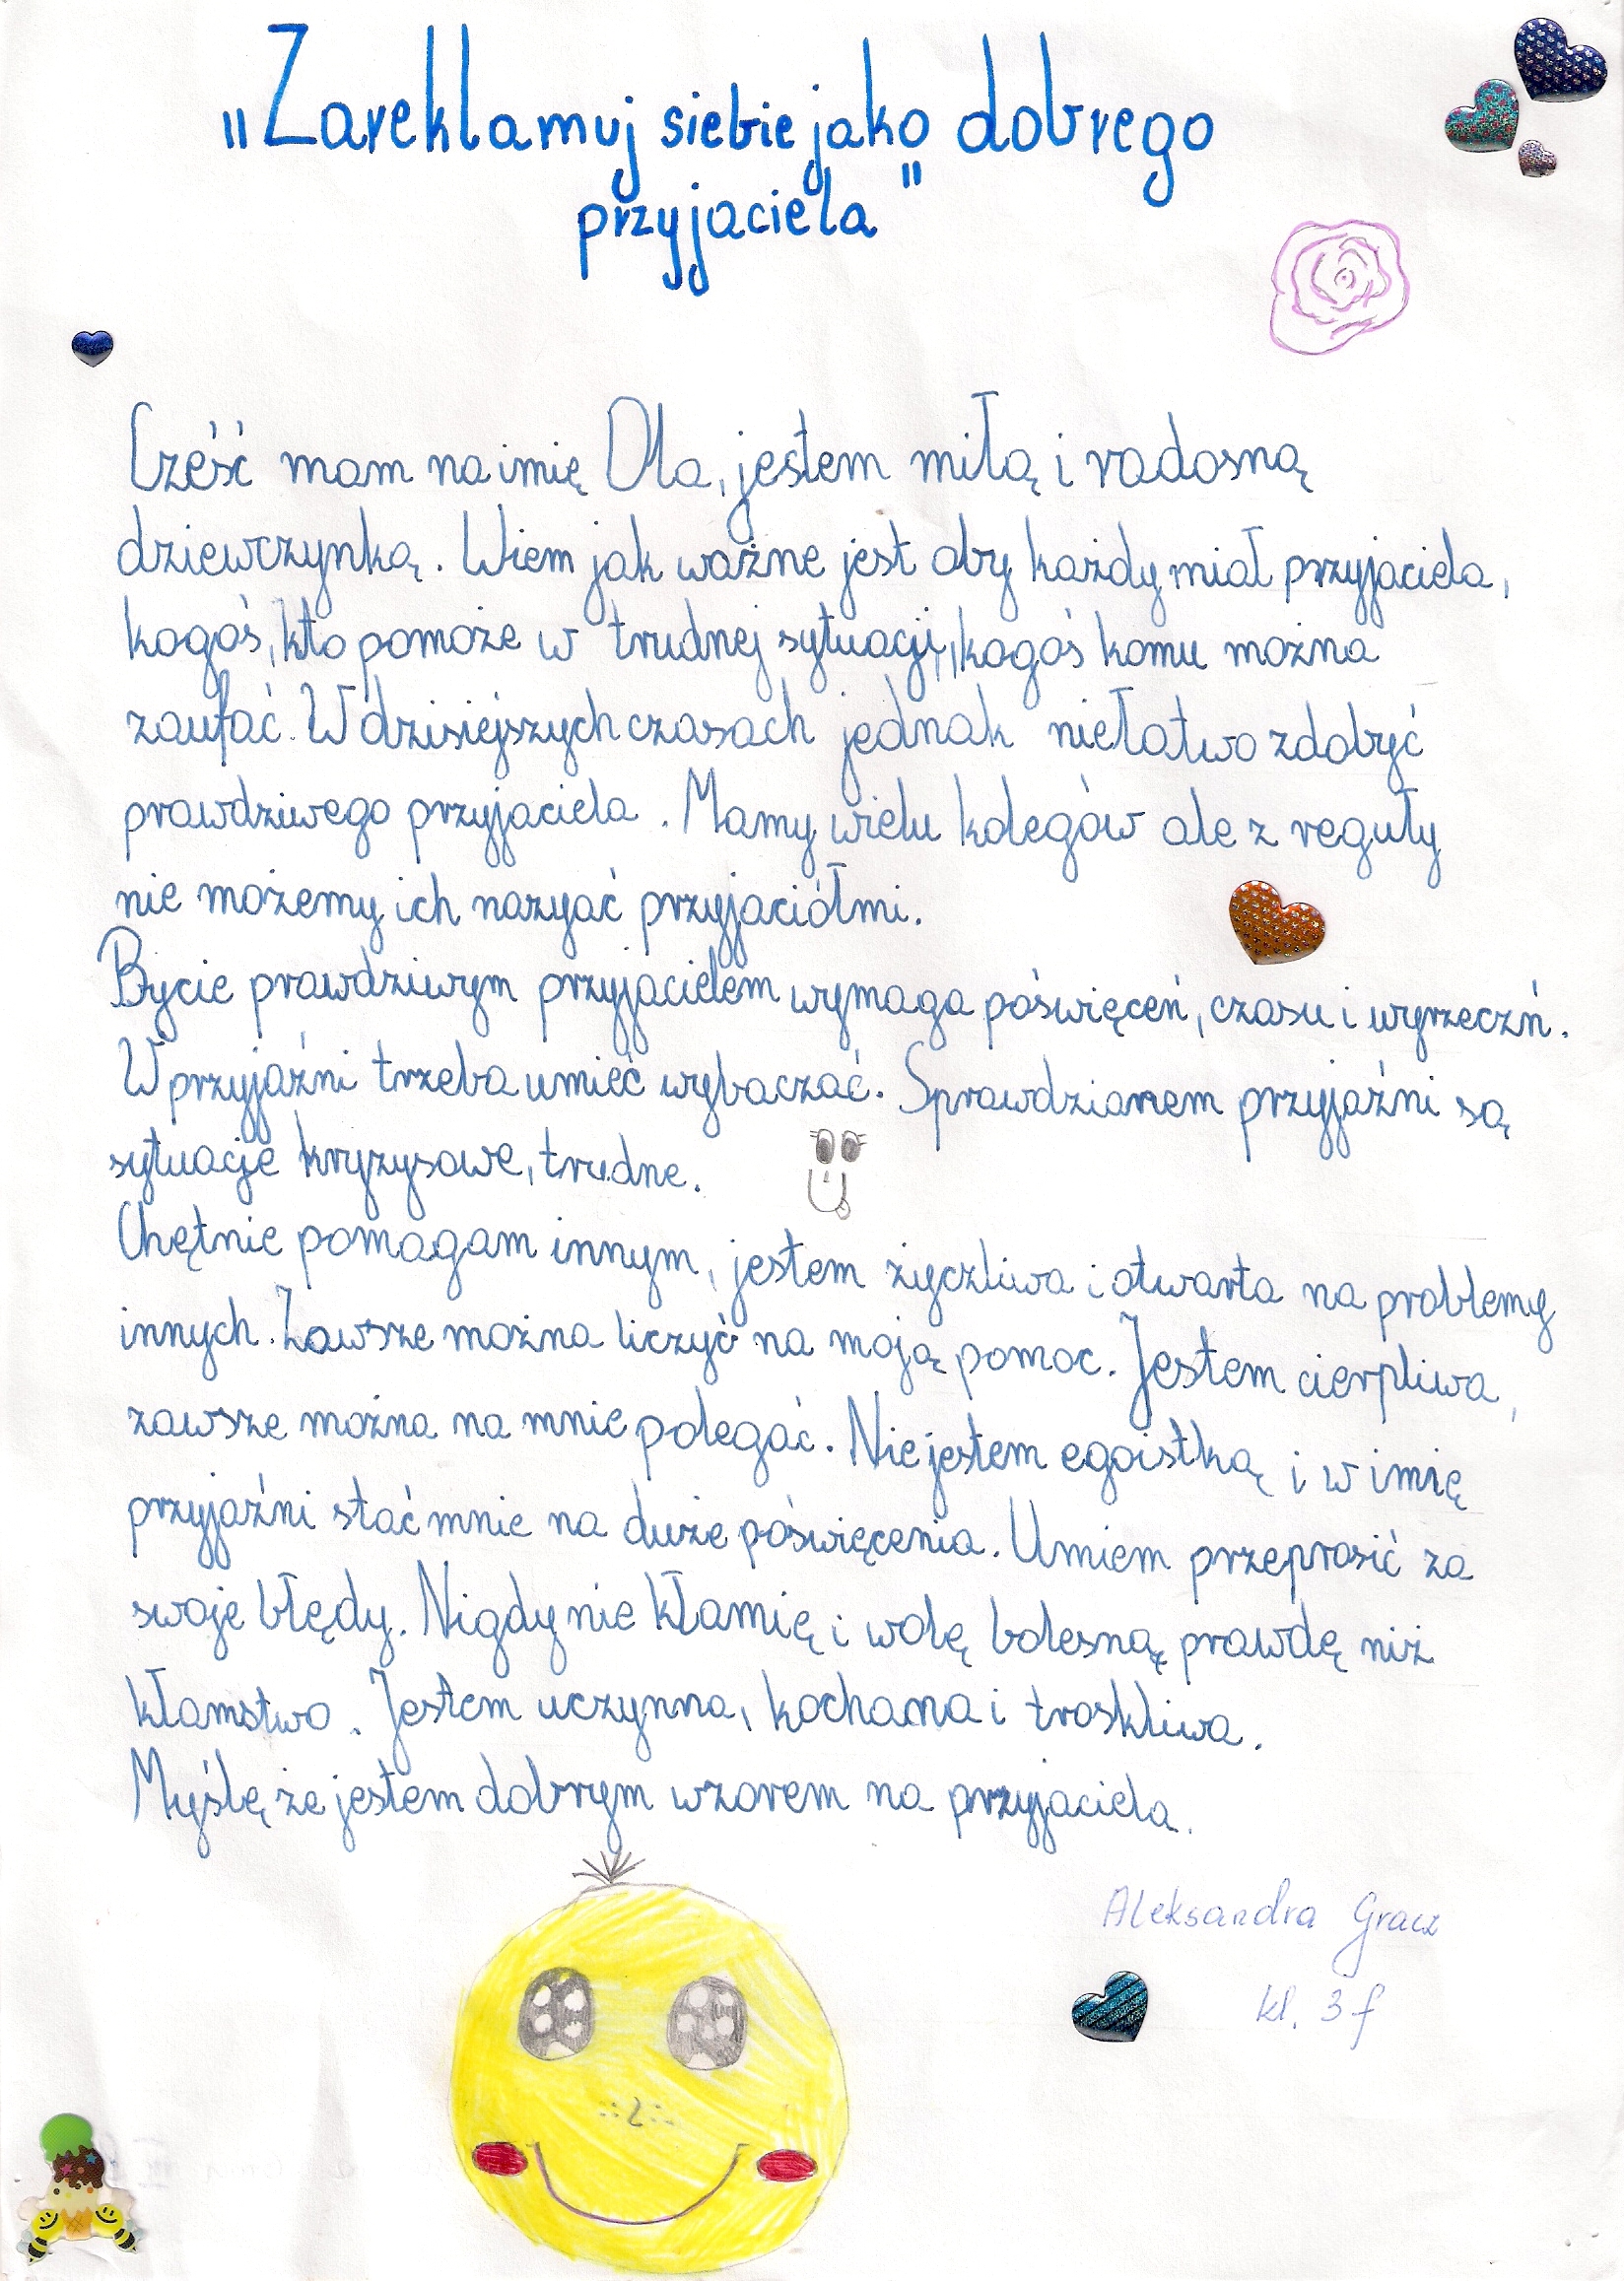 „Zareklamuj siebie jako dobrego
przyjaciela"
Cześć mam na imię Ola, jestem miłą i radosną
dziewczynką. Wiem jak ważne jest aby każdy miał przyjaciela,
kogoś, kto pomoże w trudnej sytuacji, kogoś komu można
zaufać. W dzisiejszych czasach jednak niełatwo zdobyć
prawdziwego przyjaciela. Mamy wielu kolegów ale z reguły
nie możemy ich nazyać przyjaciółmi.
Bycie prawdziwym przyjacielem wymaga poświęceń, czasu i wyrzeczń.
W przyjaźni trzeba umieć wybaczać. Sprawdzianem przyjaźni są
sytuacje kryzysowe, trudne.
Chętnie pomagam innym, jestem życzliwa i otwarta na problemy
innych. Zawsze można liczyć na moją pomoc. Jestem cierpliwa,
zawsze można na mnie polegać. Nie jestem egoistką i w imię
przyjaźni stać mnie na duże poświęcenia. Umiem przeprosić za
swoje błędy. Nigdy nie kłamię i wolę bolesną prawdę niż
kłamstwo. Jestem uczynna, kochana i troskliwa.
Myślę że jestem dobrym wzorem na przyjaciela.
Aleksandra Gracz
kl. 3f